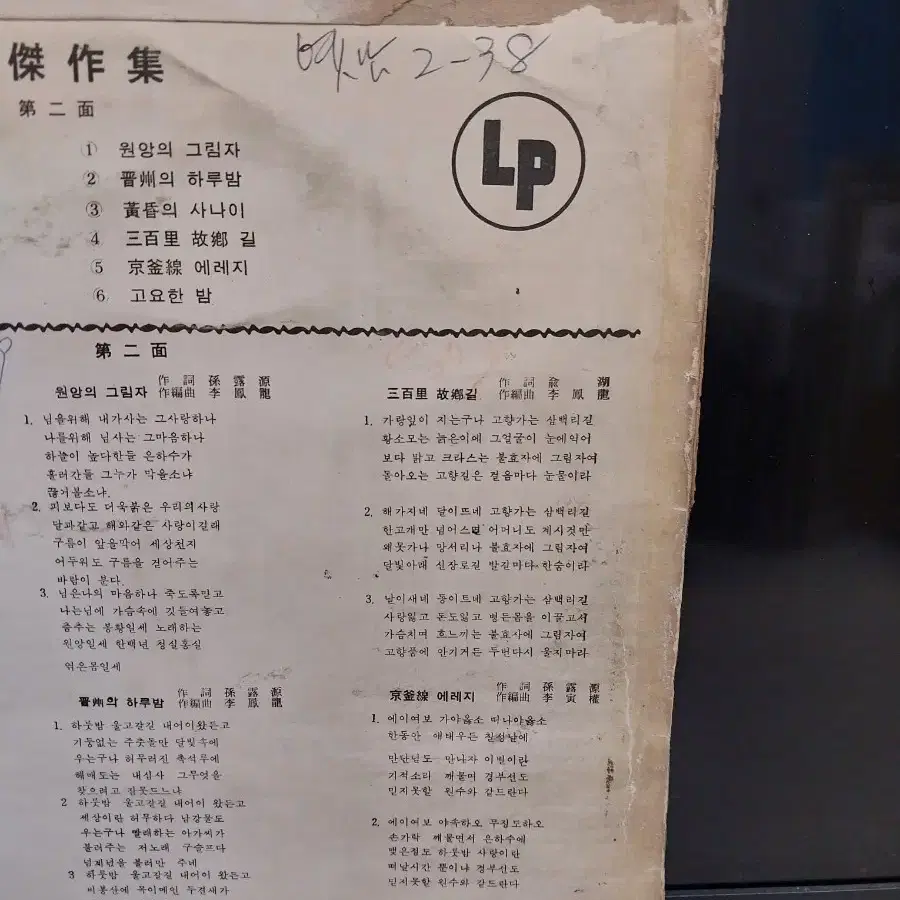 傑作集
옛날 2-38
第二面
LP
① 원앙의 그림자
② 晋州의 하루밤
③ 黃昏의 사나이
4 三百里 故鄕 길
⑤ 京釜線 에레지
⑥ 고요한 밤
第二面
원앙의 그림자 作詞 孫露源
作編曲 李鳳龍
1. 님을위해 내가사는 그사랑하나
나를위해 님사는 그마음하나
하늘이 높다한들 은하수가
흘러간들 그누가 막을소냐
끊거볼소냐.
2. 피보다도 더욱붉은 우리의사랑
달과같고 해와같은 사랑이길래
구름이 앞을막어 세상천지
어두워도 구름을 걷어주는
바람이 분다.
3. 님은나의 마음하나 죽도록믿고
나는님에 가슴속에 깃들여놓고
춤추는 봉황일세 노래하는
원앙일세 한백년 청실홍실
엮은몸일세
晋州의 하루밤 作詞 孫露源
作編曲 李鳳龍
1 하룻밤 울고갈길 내어이왔든고
기둥없는 주춧돌만 달빛속에
우는구나 허무러진 촉석루에
해매도는 내심사 그무엇을
찾으려고 잠못드느냐
2 하룻밤 울고갈길 내어이 왔든고
세상이란 허무하다 남강물도
우는구나 빨래하는 아가씨가
불러주는 저노래 구슬프다
님께님을 불러만 주네
3 하룻밤 울고갈길 내어이 왔든고
비봉산에 목이메인 두견새가
三百里 故鄕길 作詞 兪湖
作編曲 李鳳龍
1. 가랑잎이 지는구나 고향가는 삼백리길
황소모는 늙은이에 그얼굴이 눈에익어
보다 밝고 크라스는 불효자에 그림자여
돌아오는 고향길은 걸음마다 눈물이라
2. 해가지네 달이뜨네 고향가는 삼백리길
한고개만 넘어스면 어머니도 계시것만
왜못가나 망서리나 불효자에 그림자여
달빛아래 신장로길 발길마다 한숨이라
3. 날이새네 동이트네 고향가는 삼백리길
사랑잃고 돈도잃고 병든몸을 이끌고서
가슴치며 흐느끼는 불효사에 그림자여
고향품에 안기거든 두번다시 울지마라
京釜線 에레지 作詞 孫露源
作編曲 李寅權
1 에이여보 가야옳소 떠나야옳소
한동안 애태우든 칠성날에
만난님도 만나자 이별이란
기적소리 깨물며 경부선도
믿지못할 원수와 같드란다
2. 에이여보 야속하오 무정도하오
손가락 깨물면서 은하수에
맺은정도 하룻밤 사랑이란
떠날시간 뿐이냐 경부선도
믿지못할 원수와 같드란다